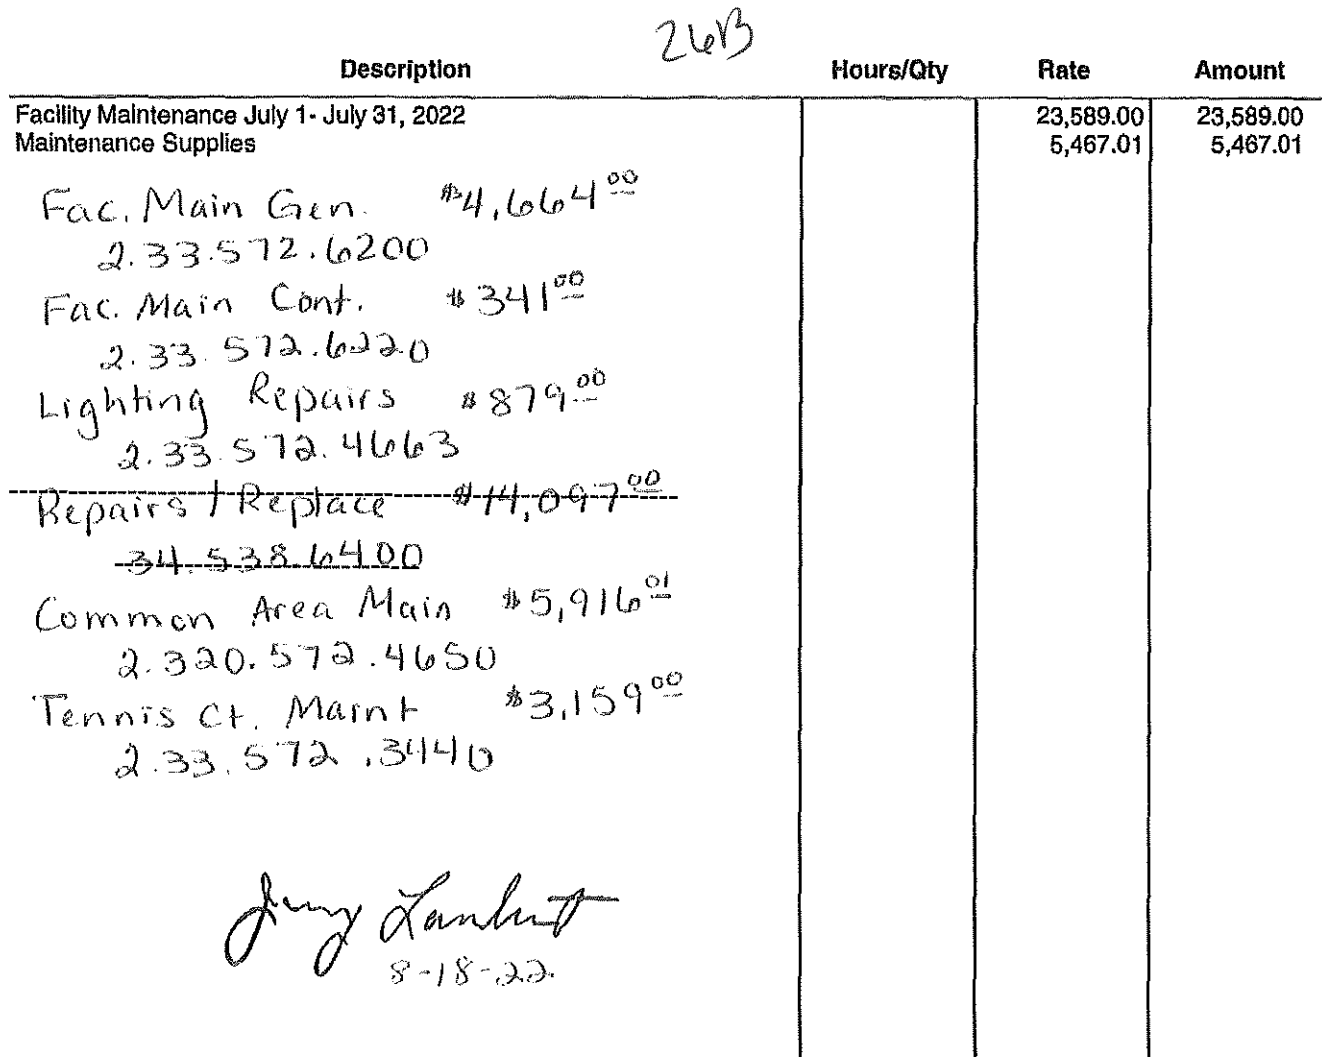 26B
Description Hours/Qty Rate Amount
Facility Maintenance July 1- July 31, 2022 23,589.00 23,589.00
Maintenance Supplies 5,467.01 5,467.01
Fac. Main Gen. $4,664.00
2.33.572.6200
Fac. Main Cont. $341.00
2.33.572.6220
Lighting Repairs $879.00
2.33.572.4663
Repairs / Replace $14,097.00
34.538.6400
Common Area Main $5,916.01
2.320.572.4650
Tennis Ct. Maint $3,159.00
2.33.572.3440
Jerry Lambert
8-18-22